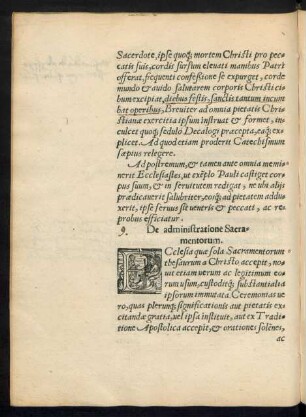 Sacerdote, ipse quoq; mortem Christi pro pec-
catis suis, cordis sursum eleuati manibus Patri
offerat, frequenti confeßione se expurget, corde
mundo & auido salutarem corporis Christi ci-
bum excipiat, diebus festis sanctis tantum incum
bat operibus, Breuiter ad omnia pietatis Chri-
stianæ exercitia ipsum instruat & formet, in-
culcet quoq; sedulo Decalogi præcepta, eaq; ex-
plicet. Ad quod etiam proderit Catechismum
sæpius relegere.
Ad postremum, & tamen ante omnia memi-
nerit Ecclesiastes, ut exēplo Pauli castiget cor-
pus suum, & in seruitutem redigat, ne ubi alijs
prædicauerit salubriter, eosq; ad pietatem addu-
xerit, ipse seruus sit uentris & peccati, ac re-
probus efficiatur.
9. De administratione Sacra-
mentorum.
ECclesia quæ sola Sacramentorum
thesaurum a Christo accepit, no-
uit etiam uerum ac legitimum eo-
rum usum, custoditq; substantialia
ipsorum immutata. Ceremonias ue
ro, quas plerunq; significationis aut pietatis ex-
citandæ gratia, uel ipsa instituit, aut ex Tradi-
tione Apostolica accepit, & orationes solēnes,
ac